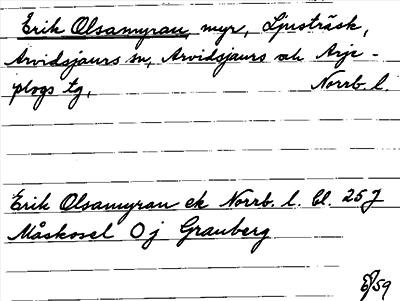 Erik Olsamyran, myr, Ljusträsk,
Arvidsjaurs sn, Arvidsjaurs och Arje-
plogs tg, Norrb. l.
Erik Olsamyran ek Norrb. l. bl. 25 J
Måskosel Oj Granberg
E/59